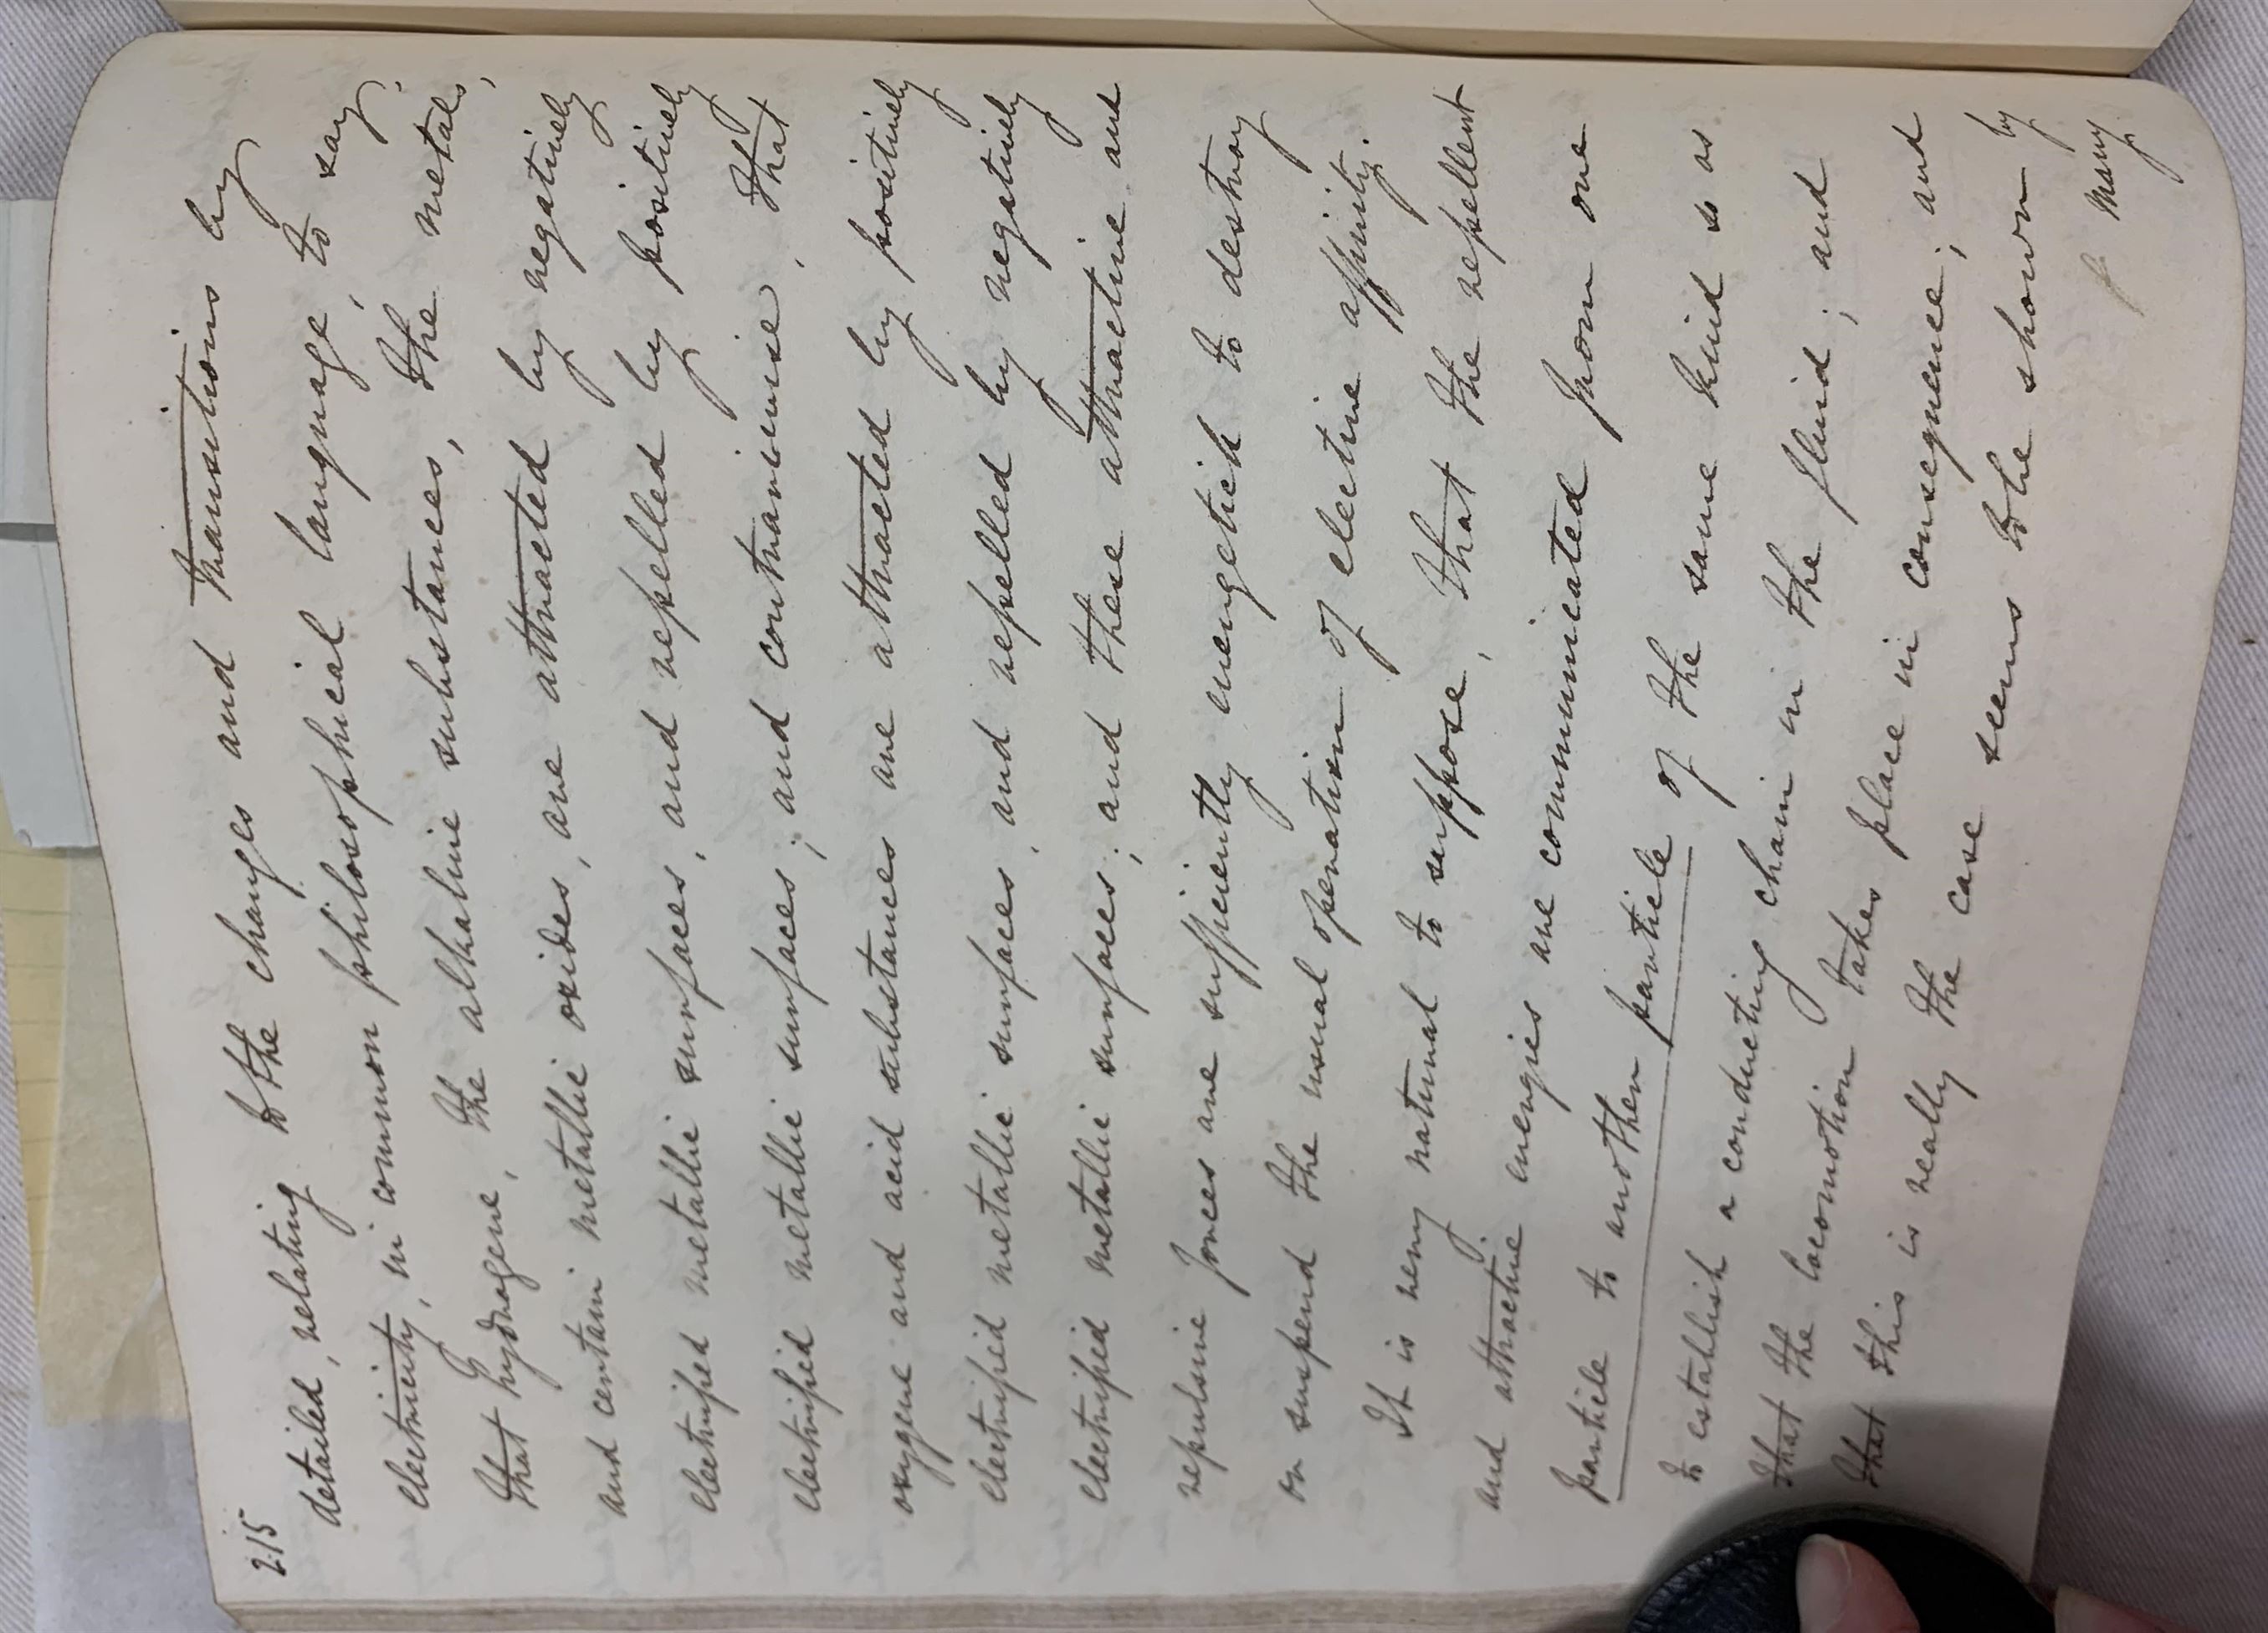 215
detailed, relating to the changes and transitions by
electricity, in common philosophical language, to say,
that hydrogene, the alkaline substances, the metals,
and certain metallic oxides, are attracted by negatively
electrified metallic surfaces, and repelled by positively
electrified metallic surfaces; and contrariwise, that
oxygene and acid substances are attracted by positively
electrified metallic surfaces, and repelled by negatively
electrified metallic surfaces; and these attractive and
repulsive forces are sufficiently energetick to destroy
or suspend the usual operation of elective affinity.
It is very natural to suppose, that the repellent
and attractive energies are communicated from one
particle to another particle of the same kind so as
to establish a conducting chain in the fluid; and
that the locomotion takes place in consequence; and
that this is really the case seems to be shown by
many